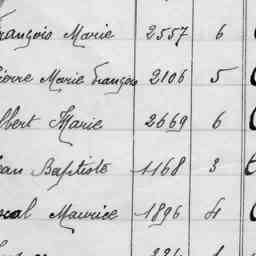 François Marie 2557 6
Pierre Marie François 2106 5
Albert Marie 2669 6
Jean Baptiste 1168 3
Maurice 1896 4